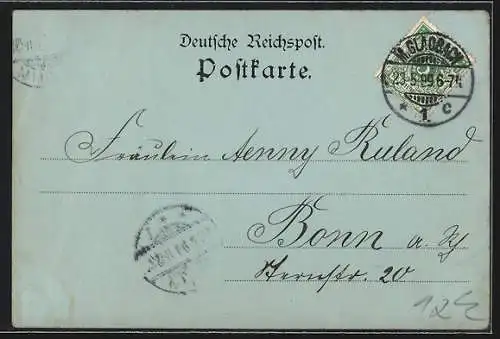 Deutsche Reichspost.
Postkarte.
M. GLADBACH
23.5.99.6-7N
* 1. c
Fräulein Aenny Ruland
Bonn a. Rh
Sternstr. 20
12ξ